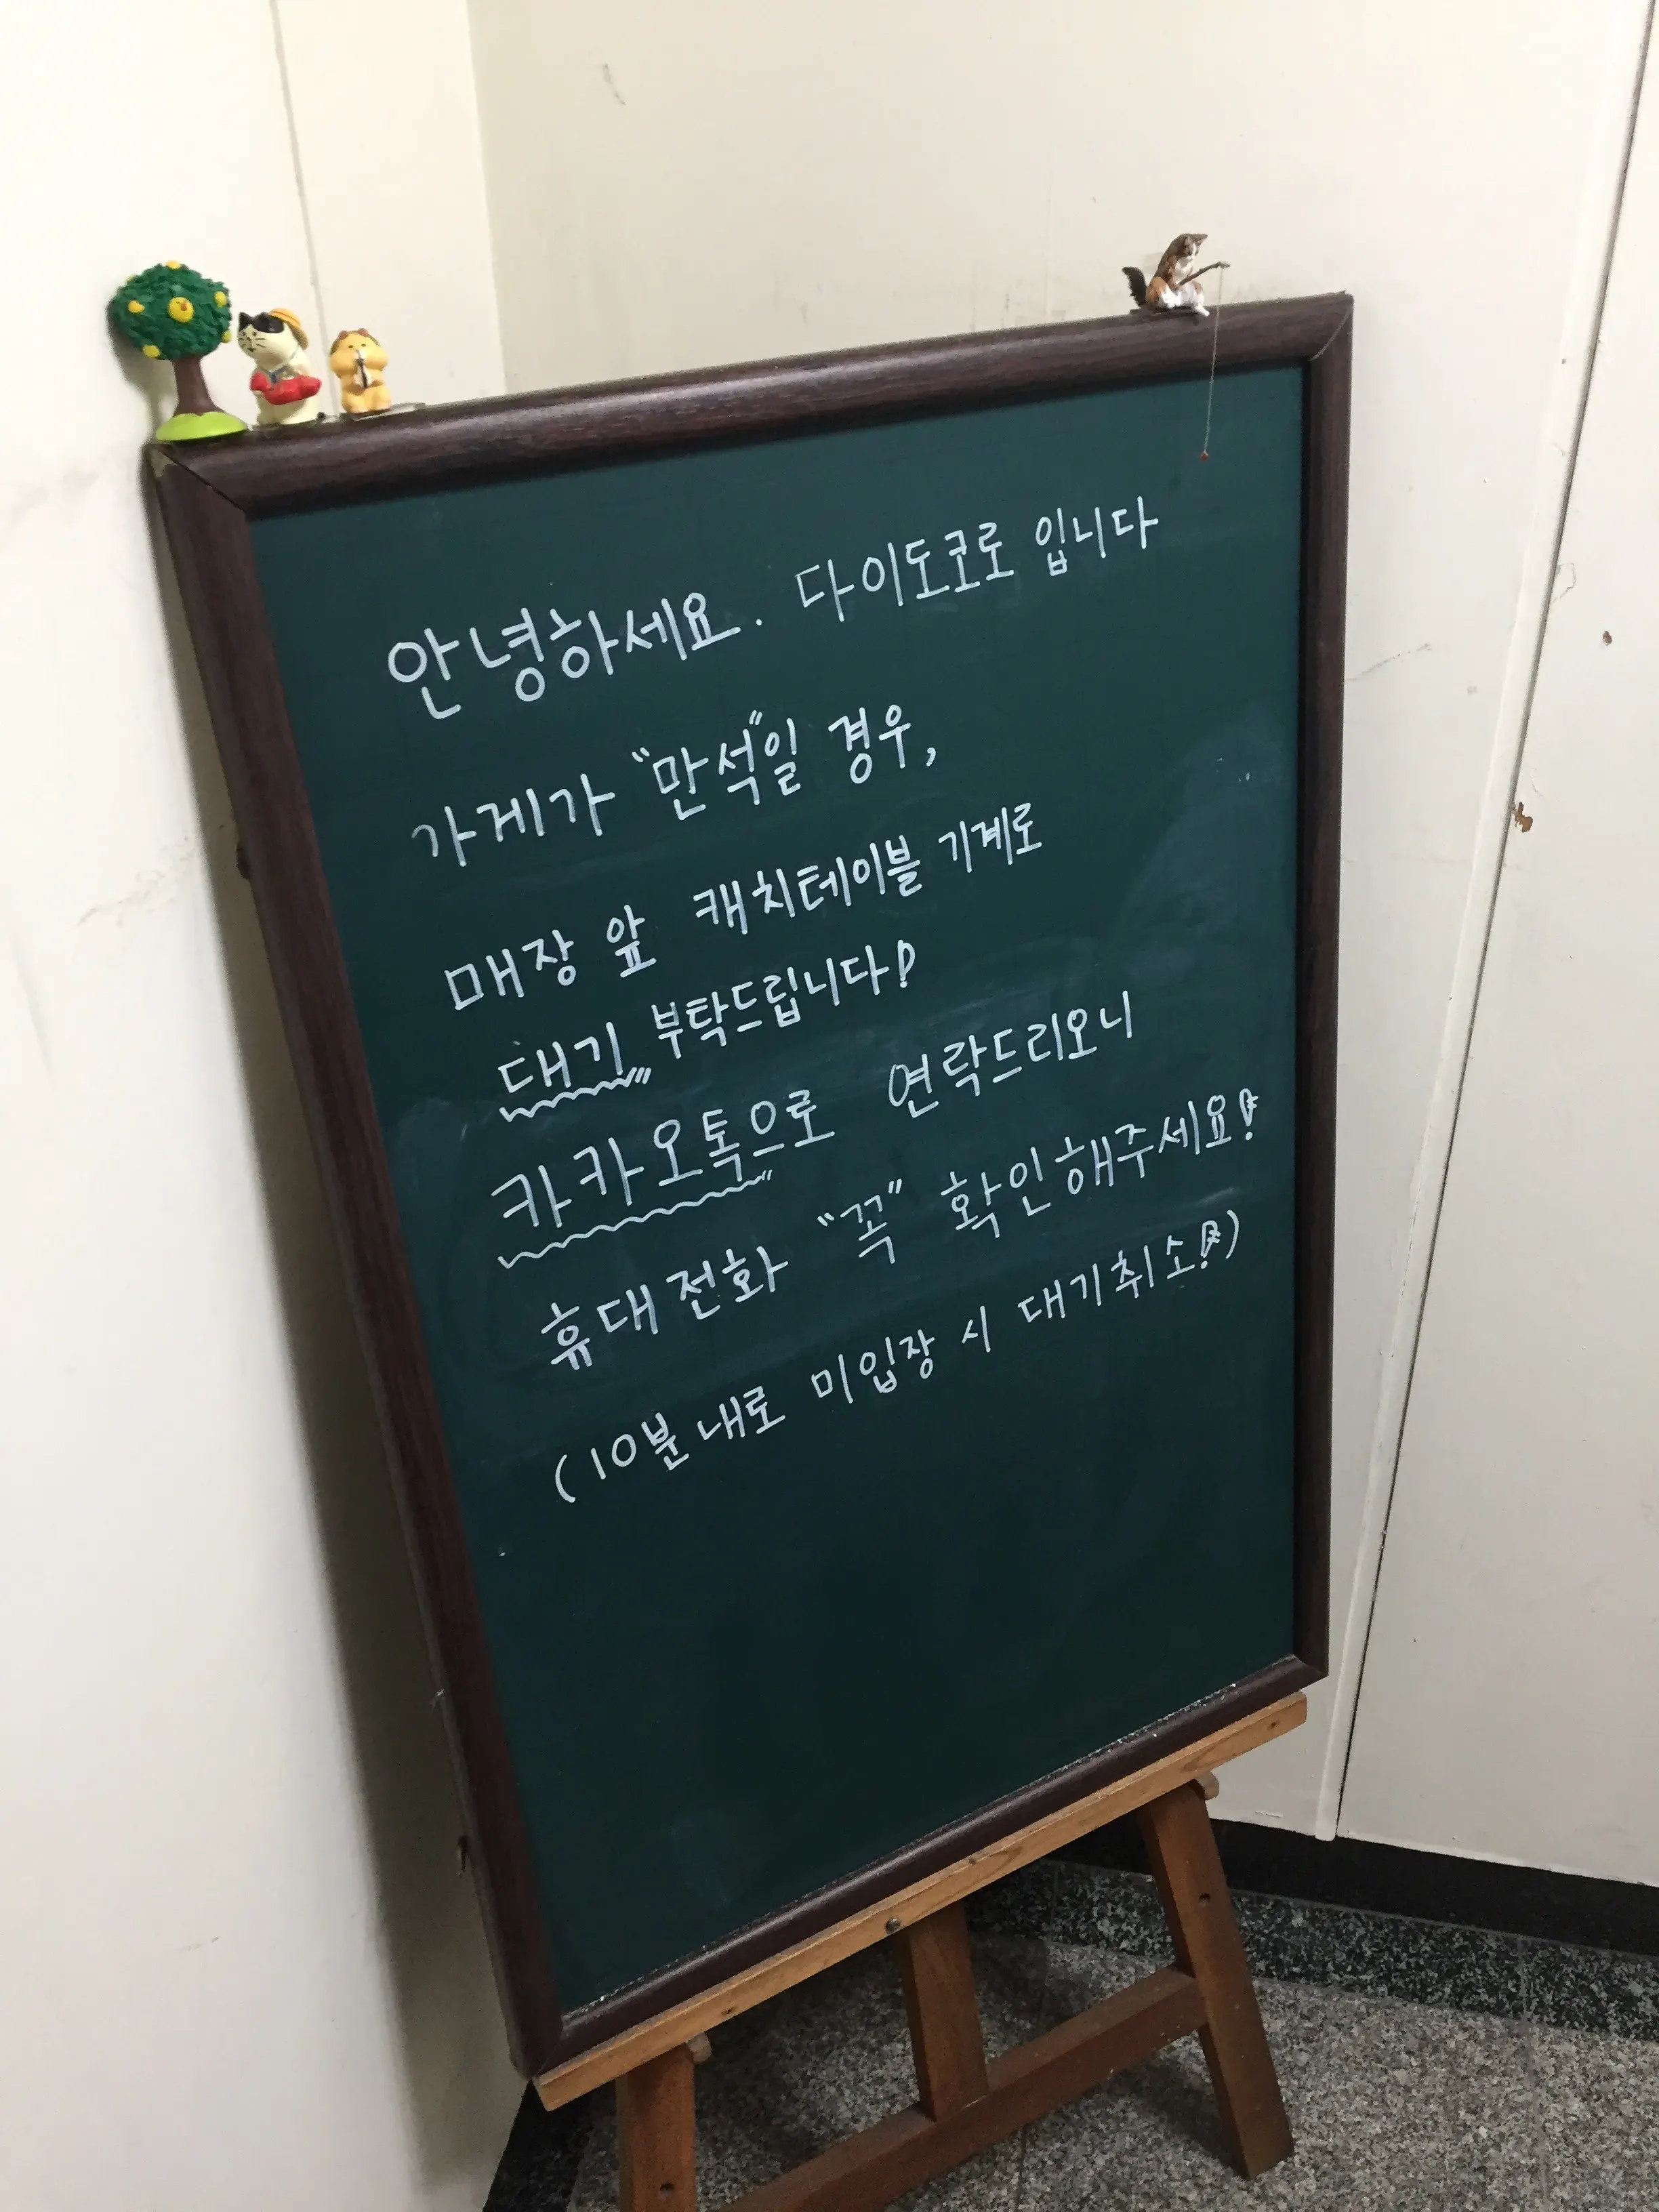 안녕하세요. 다이도코로 입니다
가게가 "만석"일 경우,
매장 앞 캐치테이블 기계로
대기 부탁드립니다!
카카오톡으로 연락드리오니
휴대전화 "꼭" 확인해주세요!
(10분 내로 미입장 시 대기취소!)